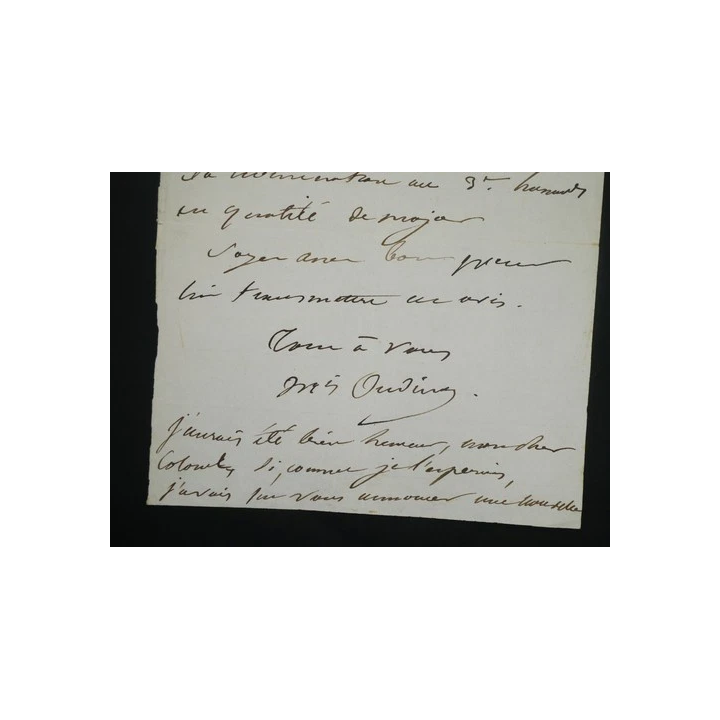 Sa nomination au 3e hussards
en qualité de major
Soyez assez bon pour
lui transmettre cet avis.
Tout à vous
Oudinot.
j'aurais été bien heureux, mon cher
Colonel, si, comme je l'espérais,
j'avais pu vous annoncer une nouvelle